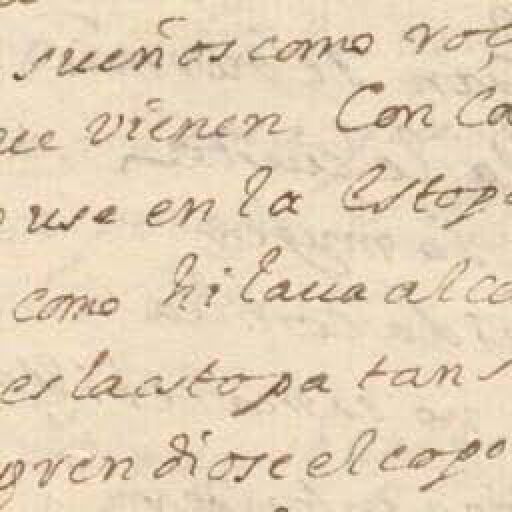 sueños como ro
ue vienen Con la
use en la Estopa
como hilaua al co
es la estopa tan s
prendiose el copo